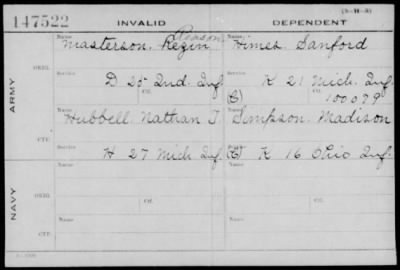 (3-H-3)
147522 INVALID DEPENDENT
Reason
Name Name
Masterson, Rezin Himes, Sanford
ARMY
ORIG. Service Ctf. Service Ctf.
D 25 Ind. Inf. K 21 Mich. Inf.
(C) 100079
Name Name
Hubbell, Nathan T. Simpson, Madison
CTF. Service Service
H 27 Mich. Inf. (C) K 16 Ohio Inf.
NAVY
Name Name
ORIG. Ctf. Ctf.
Name Name
CTF.